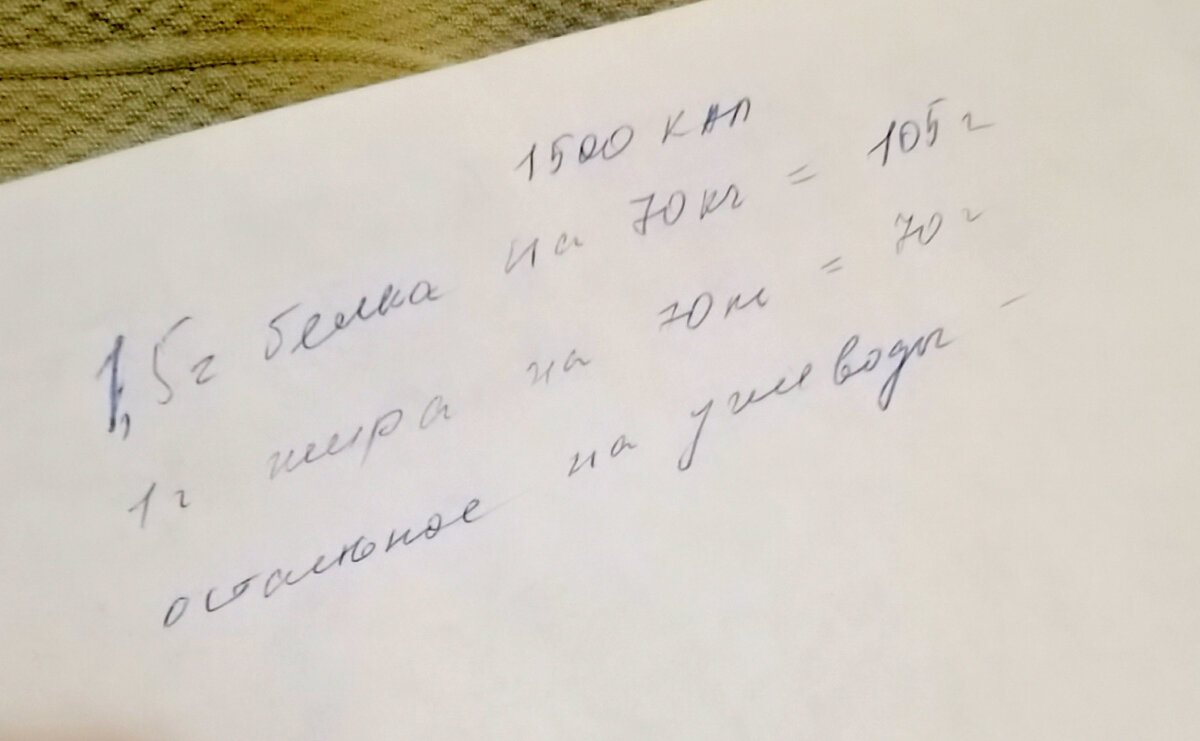 1500 кал
1,5г белка на 70кг = 105г
1г жира на 70кг = 70г
остальное на углеводы -